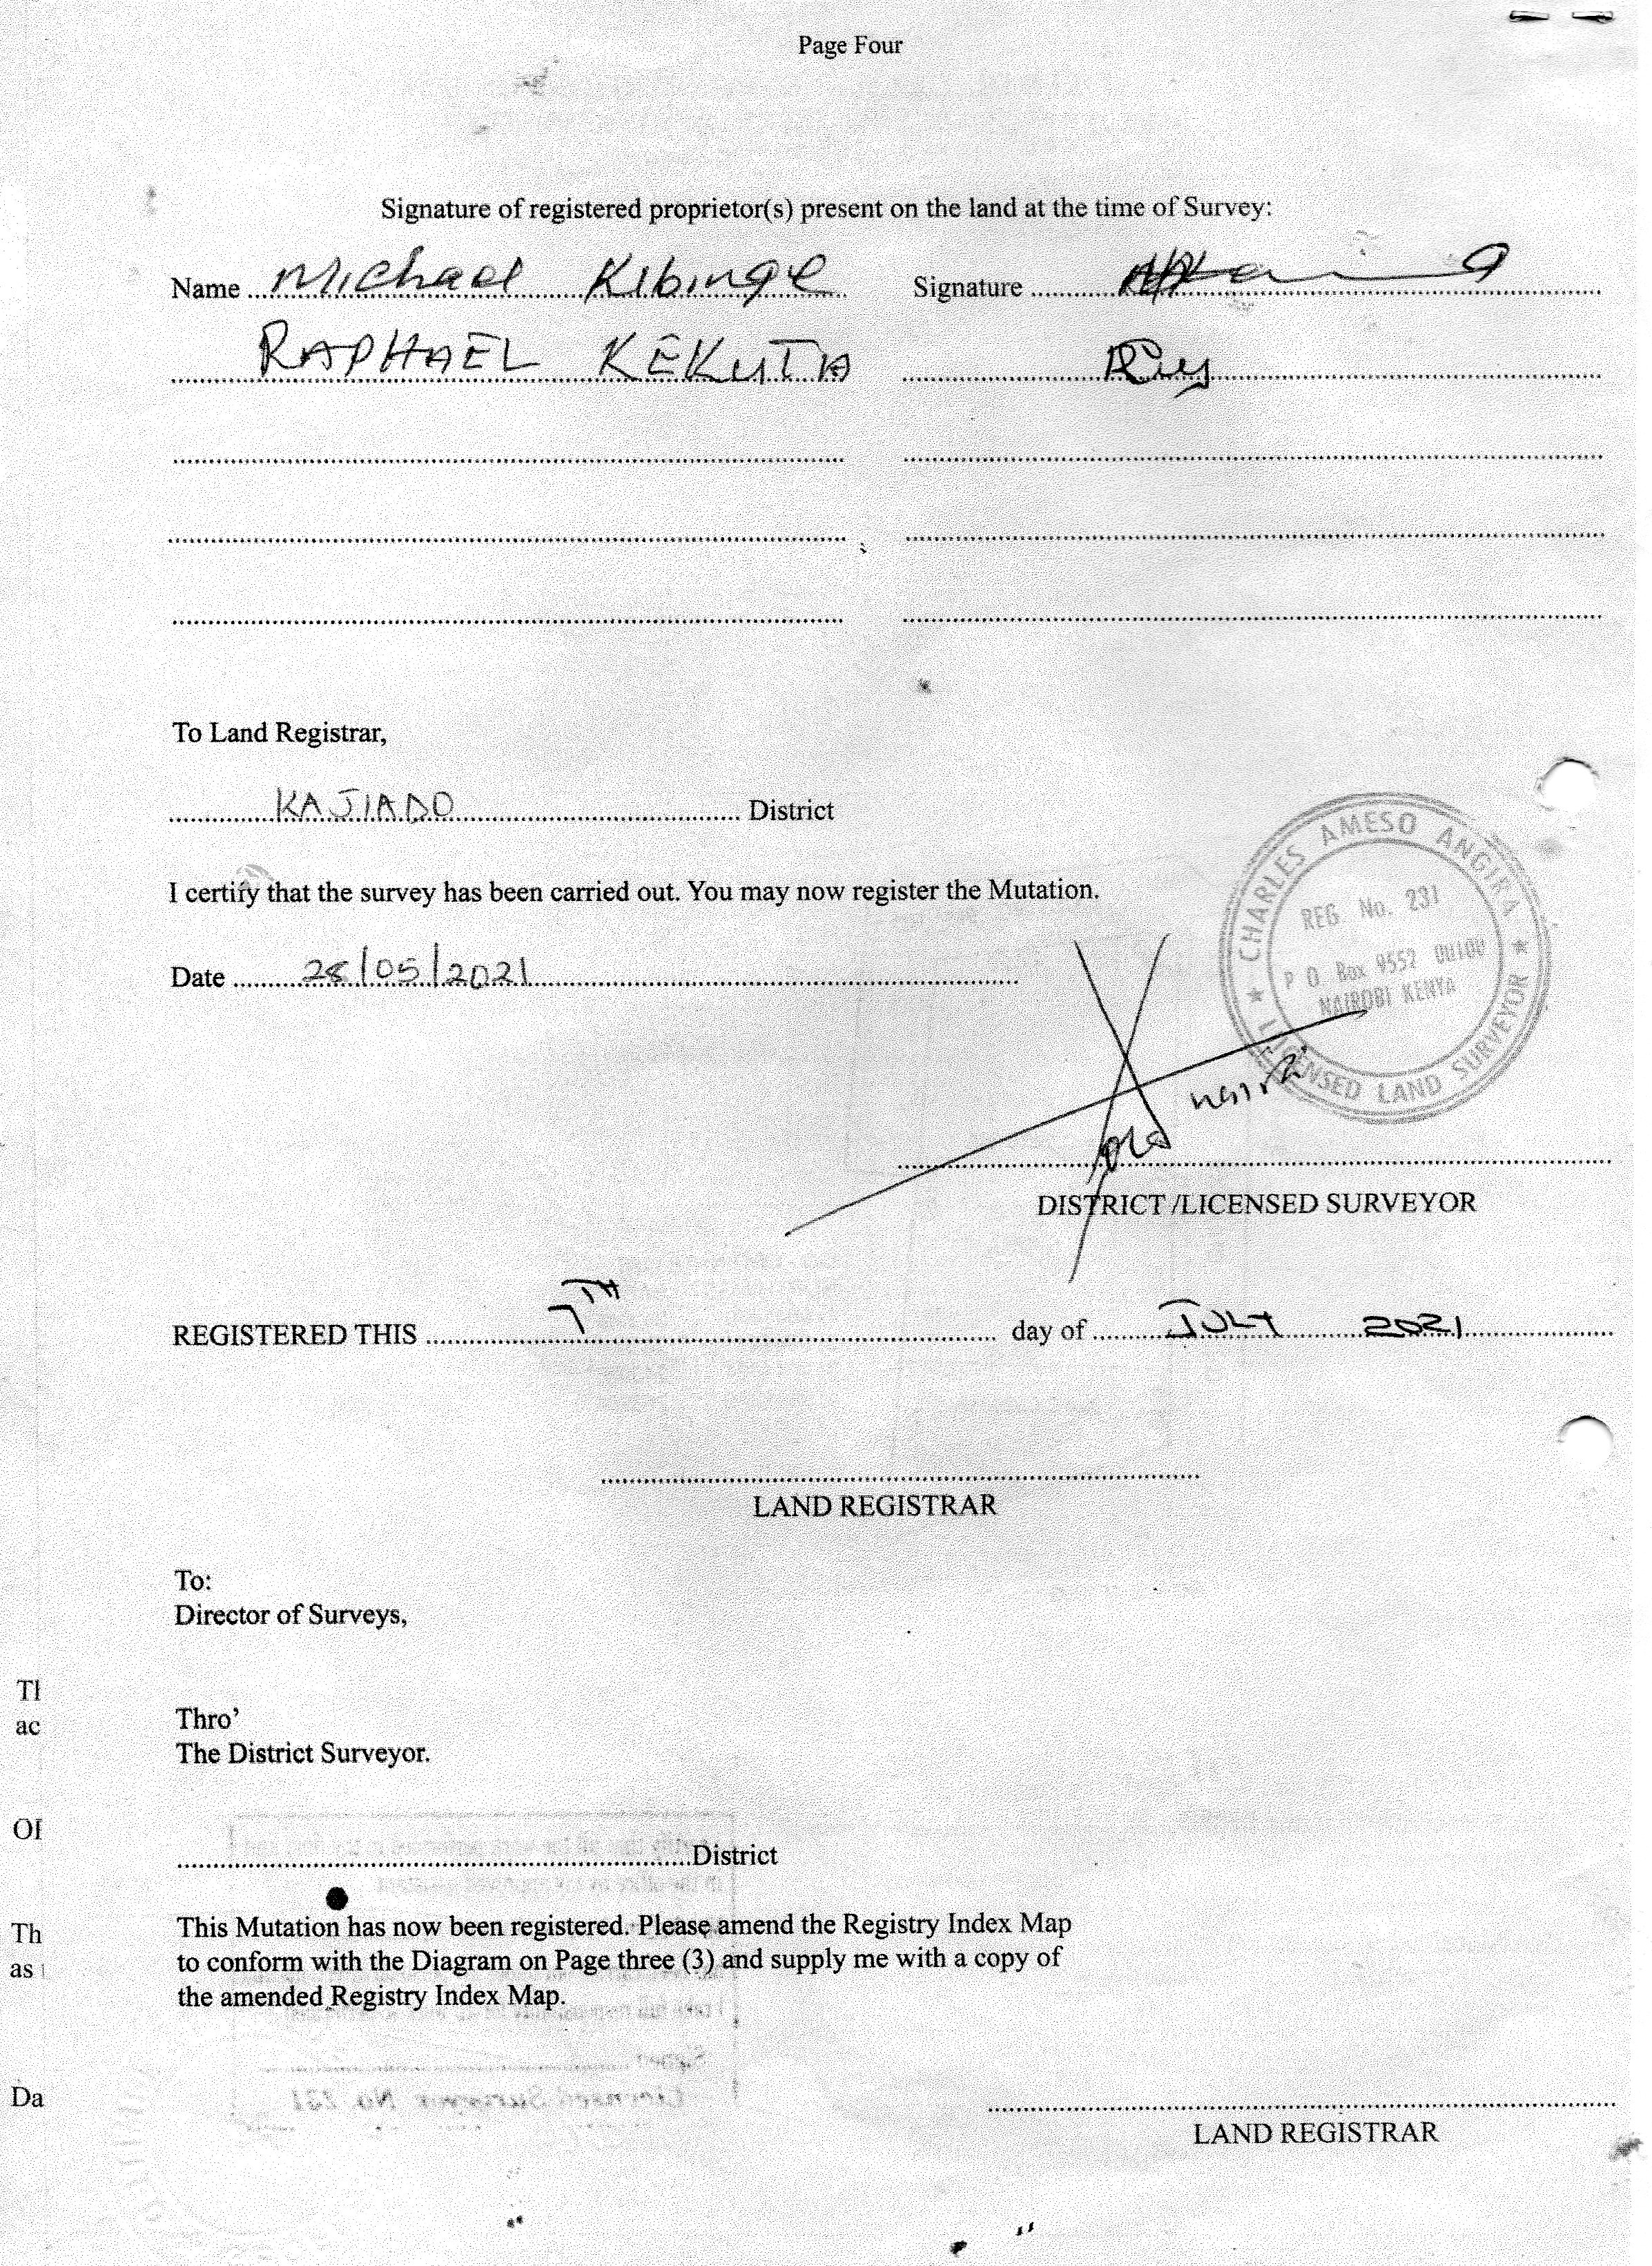 Page Four
Signature of registered proprietor(s) present on the land at the time of Survey:
Name Michael Kibinge Signature
RAPHAEL KEKUTA
To Land Registrar,
KAJIADO District
I certify that the survey has been carried out. You may now register the Mutation.
Date 28/05/2021
CHARLES AMESO ANGIRA
REG. No. 231
P O Box 9552 00100
NAIROBI KENYA
LICENSED LAND SURVEYOR
DISTRICT /LICENSED SURVEYOR
REGISTERED THIS 7TH day of JULY 2021
LAND REGISTRAR
To:
Director of Surveys,
Tl
ac
Thro’
The District Surveyor.
District
Th
as
This Mutation has now been registered. Please amend the Registry Index Map
to conform with the Diagram on Page three (3) and supply me with a copy of
the amended Registry Index Map.
Da
LAND REGISTRAR